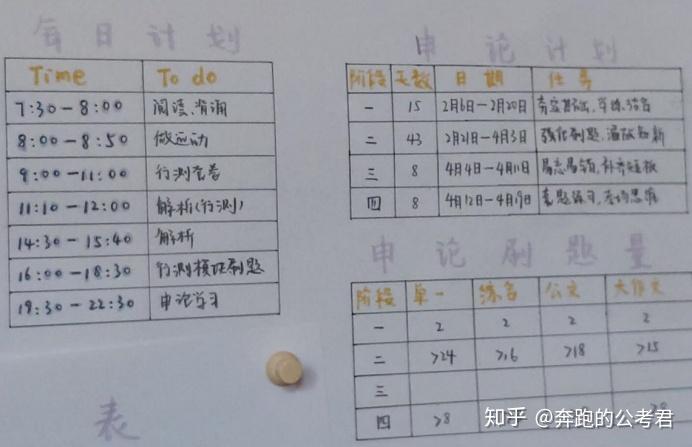 每日计划
Time To do
7:30-8:00 阅读、背诵
8:00-8:50 做运动
9:00-11:00 行测套卷
11:10-12:00 解析(行测)
14:30-15:40 解析
16:00-18:30 行测模块刷题
19:30-22:30 申论学习
申论计划
阶段 天数 日期 任务
一 15 2月6日-2月20日 夯实基础、
二 43 2月21日-4月3日 强化刷题、温故知新
三 8 4月4日-4月11日 易忘易错,补齐短板
四 8 4月12日-4月19日 套题练习,
申论刷题量
阶段 单一 综合 公文 大作文
一 2 2 2 2
二 >24 >16 >18 >15
三
四 >8
表
知乎 @奔跑的公考君